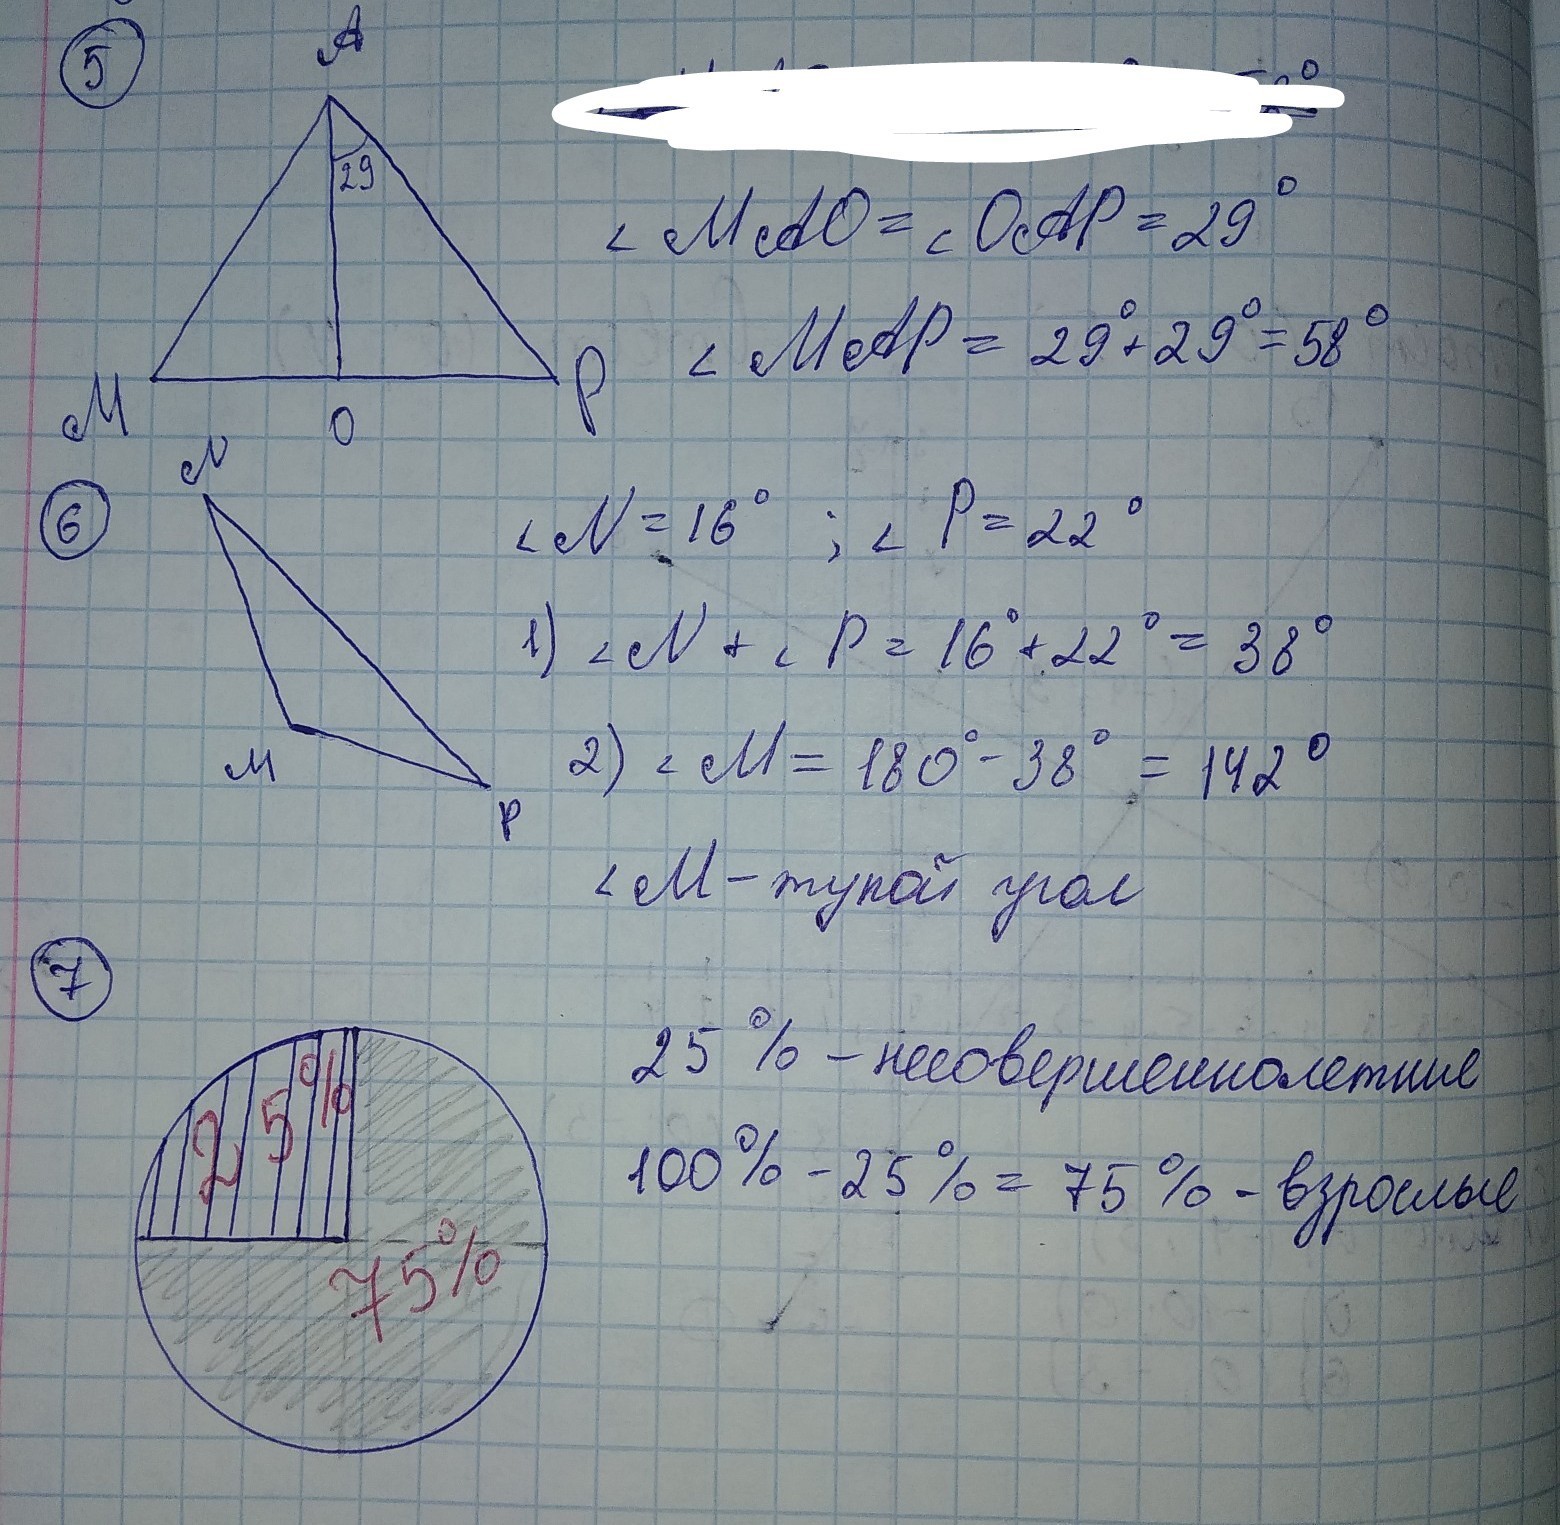 5
A
29
∠MAO = ∠OAP = 29°
∠MAP = 29° + 29° = 58°
M
O
P
6
N
∠N = 16° ; ∠P = 22°
1) ∠N + ∠P = 16° + 22° = 38°
M
2) ∠M = 180° - 38° = 142°
P
∠M - тупой угол
7
25% - несовершеннолетние
25%
100% - 25% = 75% - взрослые
75%